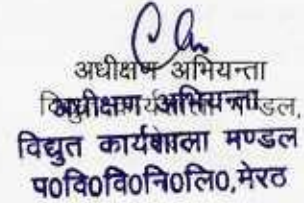 अधीक्षण अभियन्ता
अधीक्षण अभियन्ता
मण्डल,
विद्युत कार्यशाला मण्डल
प०वि०वि०नि०लि०,मेरठ